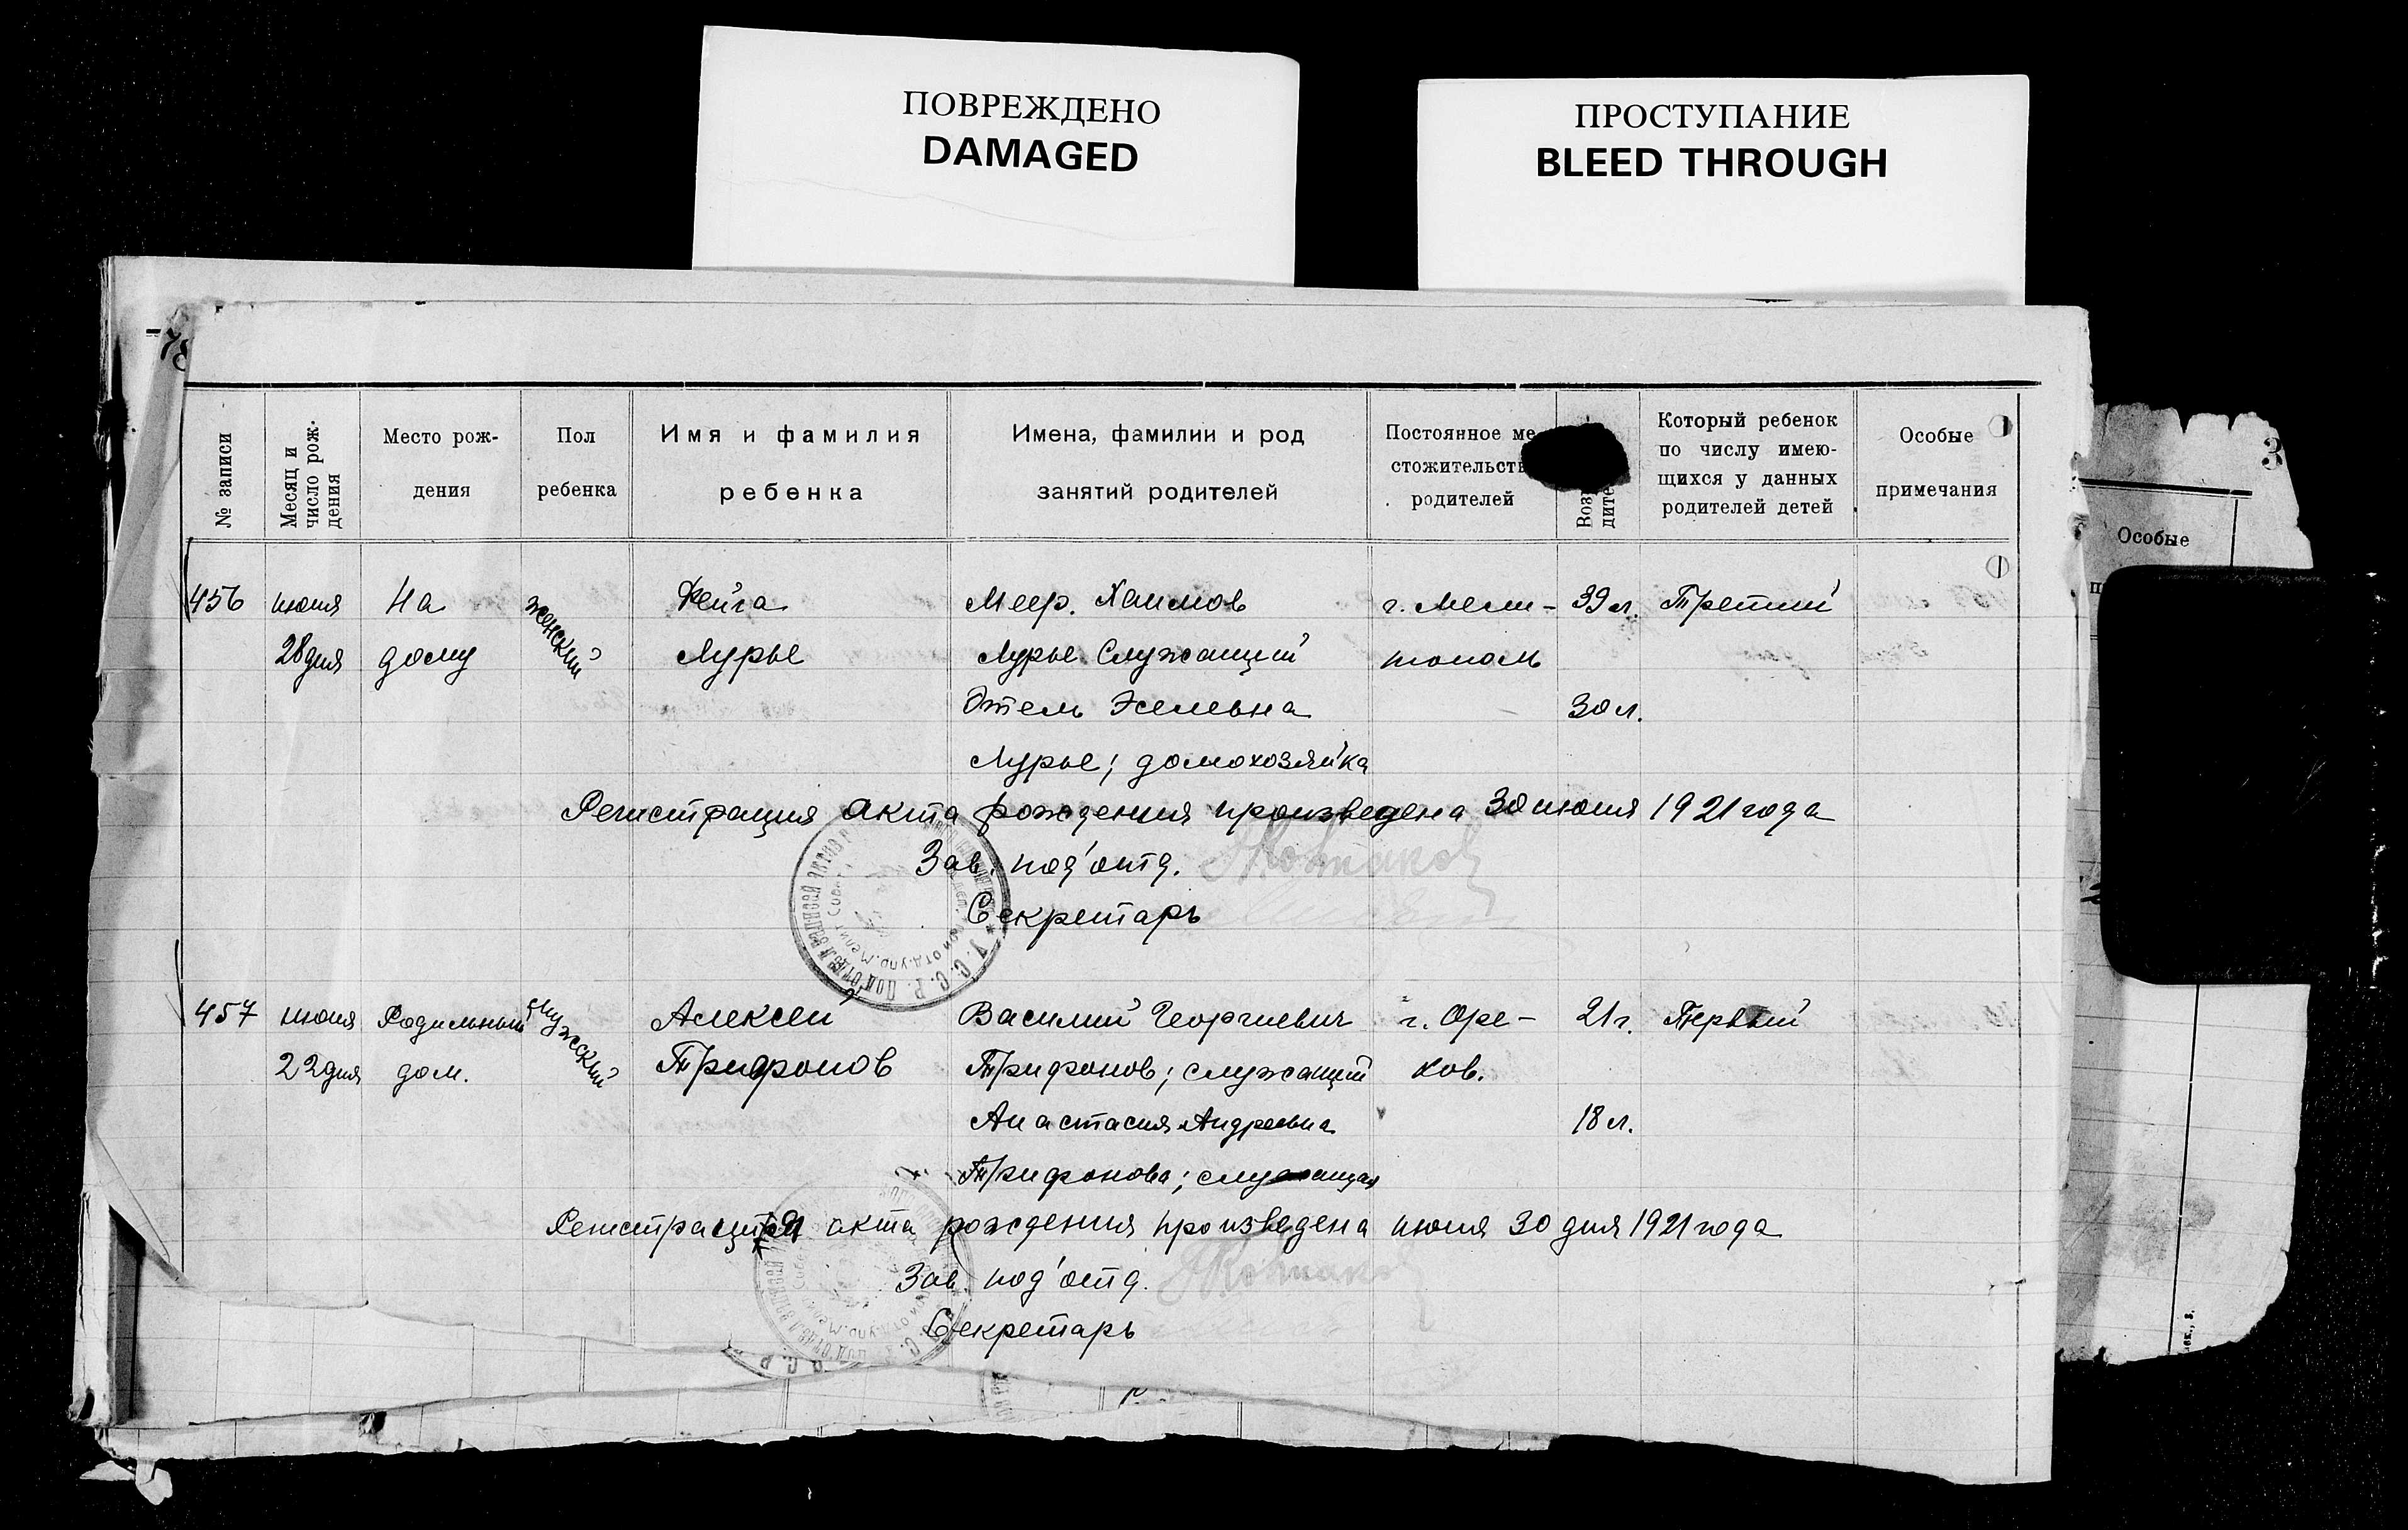 ПОВРЕЖДЕНО
DAMAGED
ПРОСТУПАНИЕ
BLEED THROUGH
78
3
№ записи
Месяц и
число рож-
дения
Место рож-
дения
Пол
ребенка
Имя и фамилия
ребенка
Имена, фамилии и род
занятий родителей
Постоянное ме
стожительств
родителей
Воз
дите
Который ребенок
по числу имею-
щихся у данных
родителей детей
Особые
примечания
Особые
456 июня На женский Фейга Меер. Хаимов г. Мели- 39 л. Третий
28 дня дому Лурье Лурье Служащий тополь
Этель 30 л.
Лурье; домохозяйка
Регистрация акта рождения произведена 30 июня 1921 года
Зав. под'отд.
Секретарь
457 июня Родильный мужский Алексей Василий Георгиевич г. Оре- 21 г. Первый
22 дня дом. Трифонов Трифонов; служащий хов.
Анастасия Андреевна 18 л.
Трифонова; служащая
Регистрация акта рождения произведена июня 30 дня 1921 года
Зав. под'отд.
Секретарь